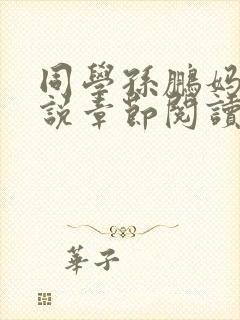 同學孫鵬媽
說章節閱讀
華子